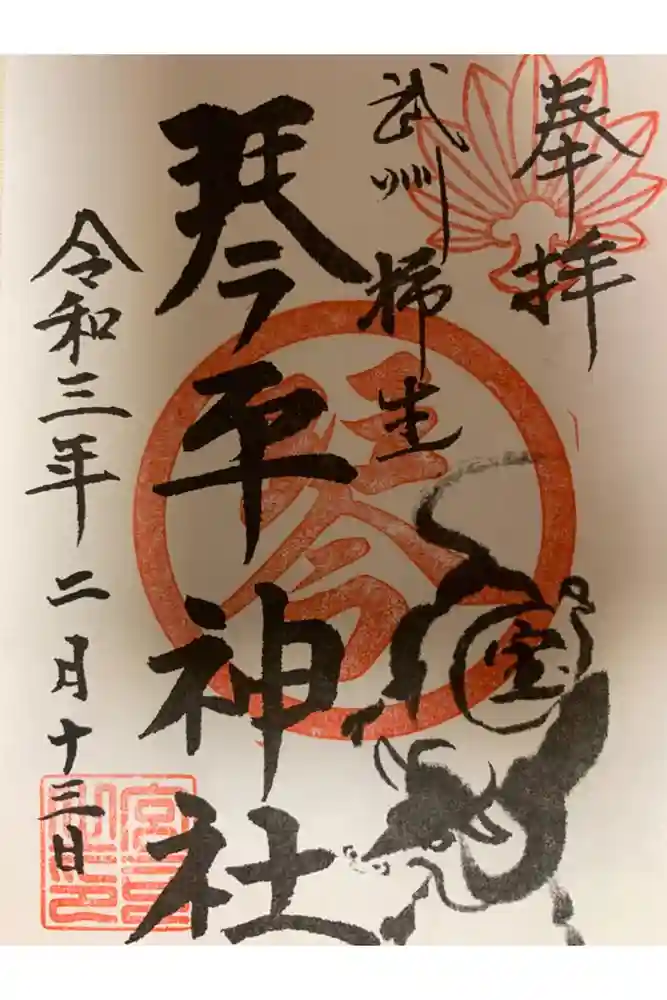 奉拝
武州 柿生
琴平神社
令和三年二月十三日
琴
宝